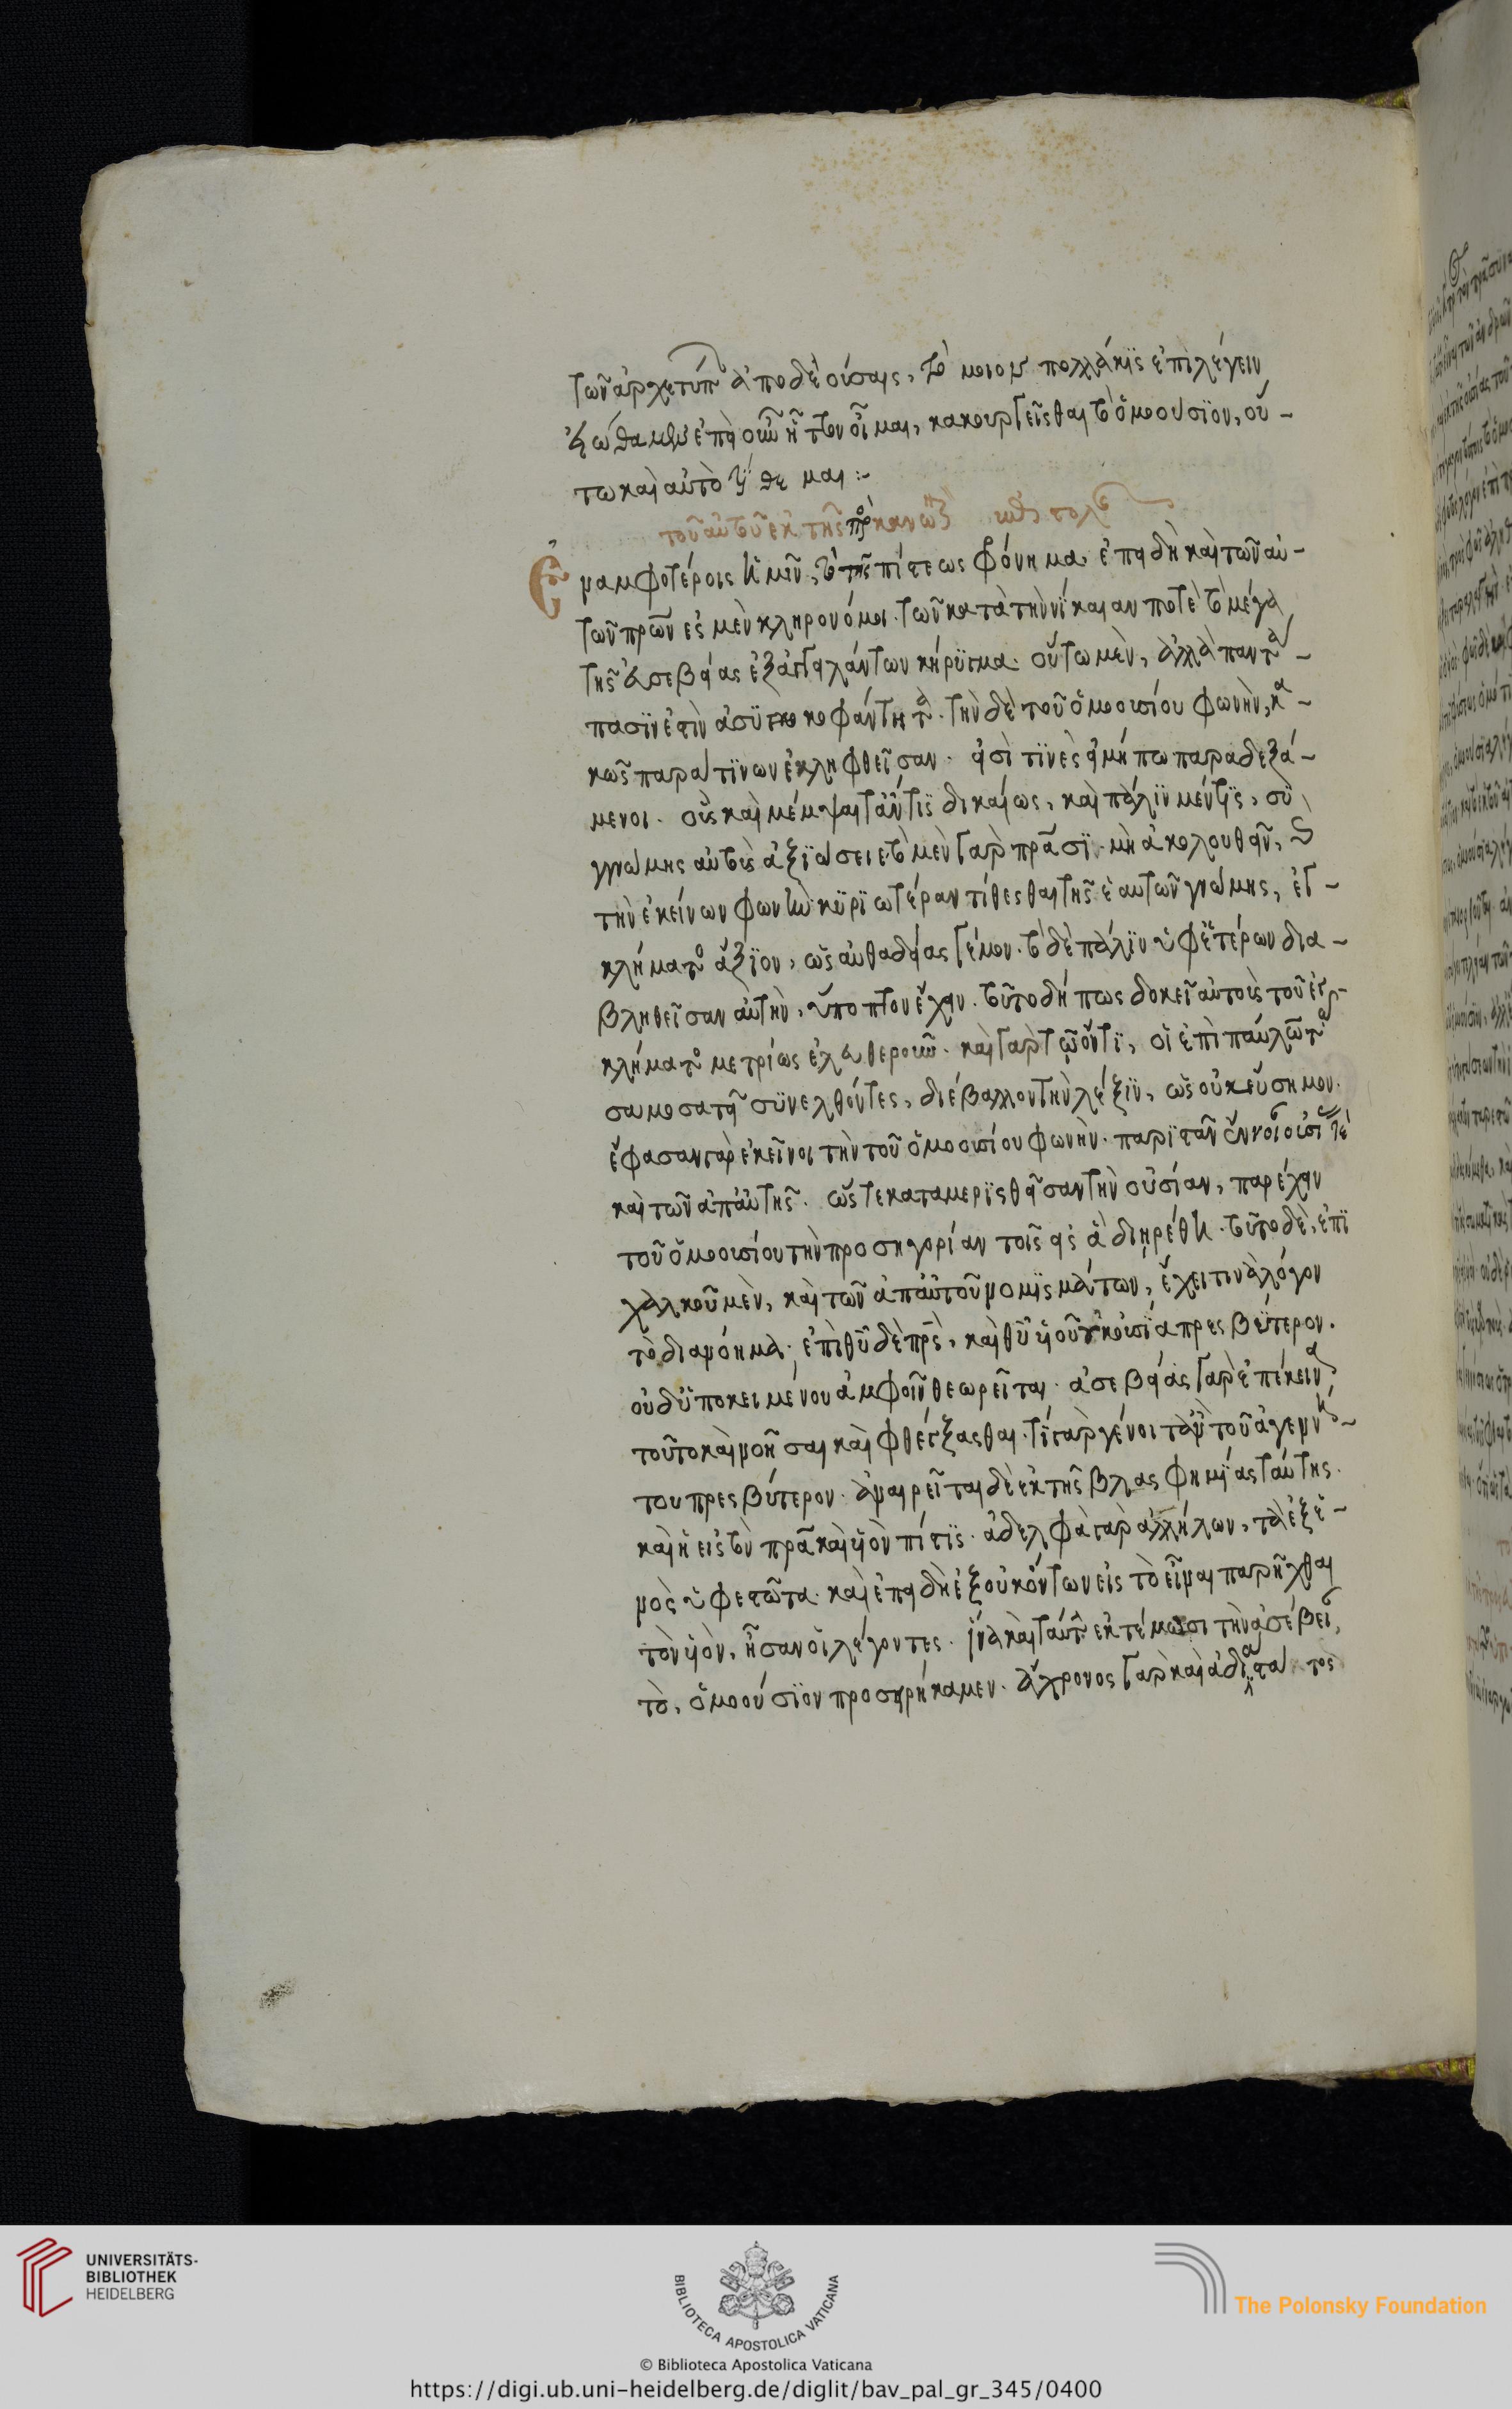 τῶν ἀρχετύπ ἀποδεούσαις, τὸ ὅμοιον πολλάκϊς ἐπιλέγειν
εἰώθαμεν ἐπεὶ οὖν ἧττον οἶμαι, κακουργεῖσθαι τὸ ὁμοούσϊον, οὕ-
τω καὶ αὐτὸς τίθεμαι :-
τοῦ αὐτοῦ ἐκ τῆς πρὸς κανονικ ἐπιστολ
Ἓν μὲν ἀμφοτέροις ἡμῖν, τὸ τῆς πίστεως φρόνημα, ἐπειδὴ καὶ τῶν αὐ-
τῶν πρων ἐσμὲν κληρονόμοι· τῶν κατὰ τὴν νίκαιάν ποτὲ τὸ μέγα
τῆς εὐσεβείας ἐξαγγειλάντων κήρυγμα· οὗ τὰ μὲν, ἄλλα παντά-
πασϊν ἐστὶν ἀσϋκοφάντητα· τὴν δὲ τοῦ ὁμοουσίου φωνὴν, κα-
κῶς παρά τϊνων ἐκληφθεῖσαν· εἰσί τϊνὲς οἱ μήπω παραδεξά-
μενοι· οὓς καὶ μέμψαιτ᾽ ἄν τϊς δικαίως, καὶ πάλϊν μέντοι, συγ
γνώμης αὐτοὺς ἀξϊώσειε· τὸ μὲν γὰρ πράσϊ μὴ ἀκολουθεῖν, καὶ
τὴν ἐκείνων φωνὴν κυρϊωτέραν τίθεσθαι τῆς ἑαυτῶν γνώμης, ἐγ-
κλήματος ἄξϊον, ὡς αὐθαδείας γέμον· τὸ δὲ πάλϊν ὑφ᾽ ἑτέρων δια-
βληθεῖσαν αὐτὴν, ὕποπτον ἔχειν· τοῦτο δή πως δοκεῖ αὐτοὺς τοῦ ἐγ-
κλήματος μετρίως ἐλευθεροῦν· καὶ γὰρ τῷ ὄντϊ, οἱ ἐπὶ παύλω τῶ
σαμοσατεῖ συνελθόντες, διέβαλλον τὴν λέξϊν, ὡς οὐκ εὔσημον·
ἔφασαν γὰρ ἐκεῖνοι τὴν τοῦ ὁμοουσίου φωνὴν· παρϊστᾶν ἔννοιαν οὐσίας τὲ
καὶ τῶν ἀπ᾽ αὐτῆς· ὥστε καταμερϊσθεῖσαν τὴν οὐσίαν, παρέχειν
τοῦ ὁμοουσίου τὴν προσηγορίαν τοῖς εἰς ἃ διηρέθη· τοῦτο δὲ, ἐπὶ
χαλκοῦ μὲν, καὶ τῶν ἀπ᾽ αὐτοῦ νομϊσμάτων, ἔχει τινὰ λόγον
τὸ διανόημα· ἐπὶ θυ δὲ πρς, καὶ θυ υἱοῦ οὐκ οὐσία πρεσβύτερον·
οὐδ᾽ ὑποκειμένου ἀμφοῖν θεωρεῖται· ἀσεβείας γὰρ ἐπέκεινα
τοῦτο καὶ νοῆσαι καὶ φθέγξασθαι· τί γὰρ γένοιτ᾽ ἂν τοῦ ἀγεννή-
του πρεσβύτερον· ἀναιρεῖται δὲ ἐκ τῆς βλασφημϊας ταύτης·
καὶ ἡ εἰς τὸν πρα καὶ υἱὸν πίστϊς· ἀδελφὰ γὰρ ἀλλήλων, τὰ ἐξ ἑ-
νὸς ὑφεστῶτα· καὶ ἐπειδὴ ἐξ οὐκ ὄντων εἰς τὸ εἶναι παρῆχθαι
τὸν υἱὸν, ἦσαν οἱ λέγοντες· ἵνα καὶ ταύτην ἐκτέμωσι τὴν ἀσέβειαν,
τὸ, ὁμοούσϊον προσειρήκαμεν· ἄχρονος γὰρ καὶ ἀδιάστατος
UNIVERSITÄTS-
BIBLIOTHEK
HEIDELBERG
BIBLIOTECA APOSTOLICA VATICANA
The Polonsky Foundation
© Biblioteca Apostolica Vaticana
https://digi.ub.uni-heidelberg.de/diglit/bav_pal_gr_345/0400